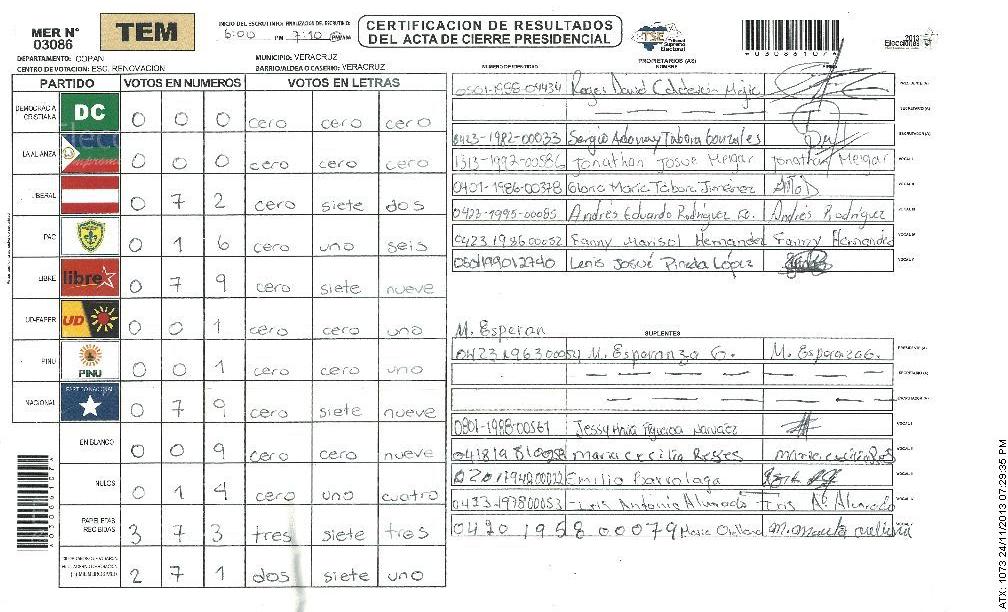 MER N° 03086
TEM
INICIO DEL ESCRUTINIO: FINALIZACION DEL ESCRUTINIO:
6:00 PM 7:10
CERTIFICACION DE RESULTADOS
DEL ACTA DE CIERRE PRESIDENCIAL
TSE Tribunal Supremo Electoral
2013 Elecciones
DEPARTAMENTO: COPAN MUNICIPIO: VERACRUZ
CENTRO DE VOTACION: ESC. RENOVACION BARRIO/ALDEA O CASERIO: VERACRUZ
PARTIDO VOTOS EN NUMEROS VOTOS EN LETRAS
DEMOCRACIA CRISTIANA DC 0 0 0 cero cero cero
LA ALIANZA 0 0 0 cero cero cero
LIBERAL 0 7 2 cero siete dos
PAC 0 1 6 cero uno seis
LIBRE libre 0 7 9 cero siete nueve
UD-FAPER UD 0 0 1 cero cero uno
PINU PINU 0 0 1 cero cero uno
NACIONAL PARTIDO NACIONAL 0 7 9 cero siete nueve
EN BLANCO 0 0 9 cero cero nueve
NULOS 0 1 4 cero uno cuatro
PAPELETAS RECIBIDAS 3 7 3 tres siete tres
2 7 1 dos siete uno
NUMERO DE IDENTIDAD PROPIETARIOS (AS) NOMBRE
0501-1988-09434 Roger David Calderon Mejia
SECRETARIO (A)
0423-1982-00033 Sergio Adonay Tabora Gonzales
1313-1992-00586 Jonathan Josue Melgar Jonathan Melgar
0401-1986-00378 Gloria Maria Tabora Jiménez
0423-1995-00085 Andrés Eduardo Rodríguez Andrés Rodríguez
0423198600052 Fanny Marisol Hernandez Fanny Hernandez
0501199012740 Lenis Josué Pineda López
M. Esperan
SUPLENTES
0423196300054 M. Esperanza G. M. Esperanza G.
0801-1988-00561 Jessy Figueroa Narvaez
Maria Cecilia Reyes
Emilio Barrolaga
0423-1978-00053 Luis Antonio Alvarado Luis A. Alvarado
0420 1958 00079 Maria Orellana
ATX: 1073 24/11/2013 07:29:35 PM